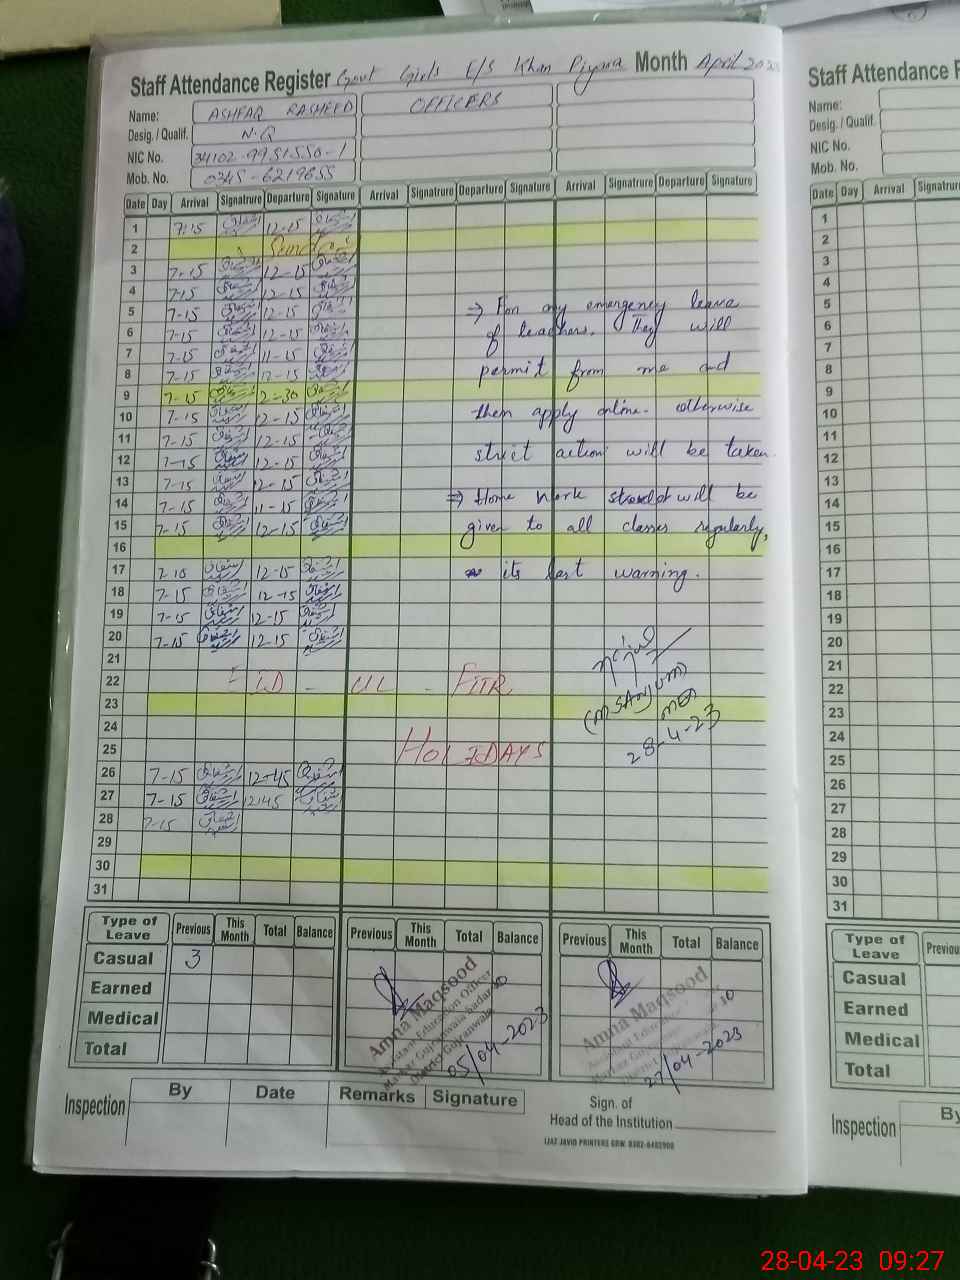 Staff Attendance Register Govt Girls E/S Khan Piyara Month April 2023
Name: ASHFAQ RASHEED OFFICERS
Desig. / Qualif. N.Q
NIC No. 34102-9951550-1
Mob. No. 0345-6219655
Date Day Arrival Signature Departure Signature Arrival Signatrure Departure Signature Arrival Signatrure Departure Signature
1 7:15 اشفاق 12-15 اشفاق
2 Sunday
3 7-15 اشفاق 12-15 اشفاق
4 7-15 اشفاق 12-15 اشفاق
5 7-15 اشفاق 12-15 اشفاق
6 7-15 اشفاق 12-15 اشفاق
7 7-15 اشفاق 11-15 اشفاق
8 7-15 اشفاق 12-15 اشفاق
9 7-15 اشفاق 12-30 اشفاق
10 7-15 اشفاق 12-15 اشفاق
11 7-15 اشفاق 12-15 اشفاق
12 7-15 اشفاق 12-15 اشفاق
13 7-15 اشفاق 12-15 اشفاق
14 7-15 اشفاق 11-15 اشفاق
15 7-15 اشفاق 12-15 اشفاق
16
17 7-15 اشفاق 12-15 اشفاق
18 7-15 اشفاق 12-15 اشفاق
19 7-15 اشفاق 12-15 اشفاق
20 7-15 اشفاق 12-15 اشفاق
21
22 EID - UL - FITR
23
24
25 HOLIDAYS
26 7-15 اشفاق 12-45 اشفاق
27 7-15 اشفاق 12:45 اشفاق
28 7-15 اشفاق
29
30
31
⇒ For any emergency leave
of teachers. They will
permit from me and
then apply online. otherwise
strict action will be taken.
⇒ Home work will be
given to all classes regularly,
its last warning.
(MSANJUM)
28-4-23
Type of Leave Previous This Month Total Balance Previous This Month Total Balance Previous This Month Total Balance
Casual 3
Earned
Medical
Total
Amna Maqsood
Assistant Education Officer
Markaz Gujranwala Sadar 10
District Gujranwala
05/04-2023
Amna Maqsood
Assistant Education
10
27/04-2023
Inspection By Date Remarks Signature
Sign. of
Head of the Institution
IJAZ JAVID PRINTERS GRW. 0302-6482900
Staff Attendance
Name:
Desig. / Qualif.
NIC No.
Mob. No.
Date Day Arrival
1
2
3
4
5
6
7
8
9
10
11
12
13
14
15
16
17
18
19
20
21
22
23
24
25
26
27
28
29
30
31
Type of Leave
Casual
Earned
Medical
Total
Inspection
28-04-23 09:27